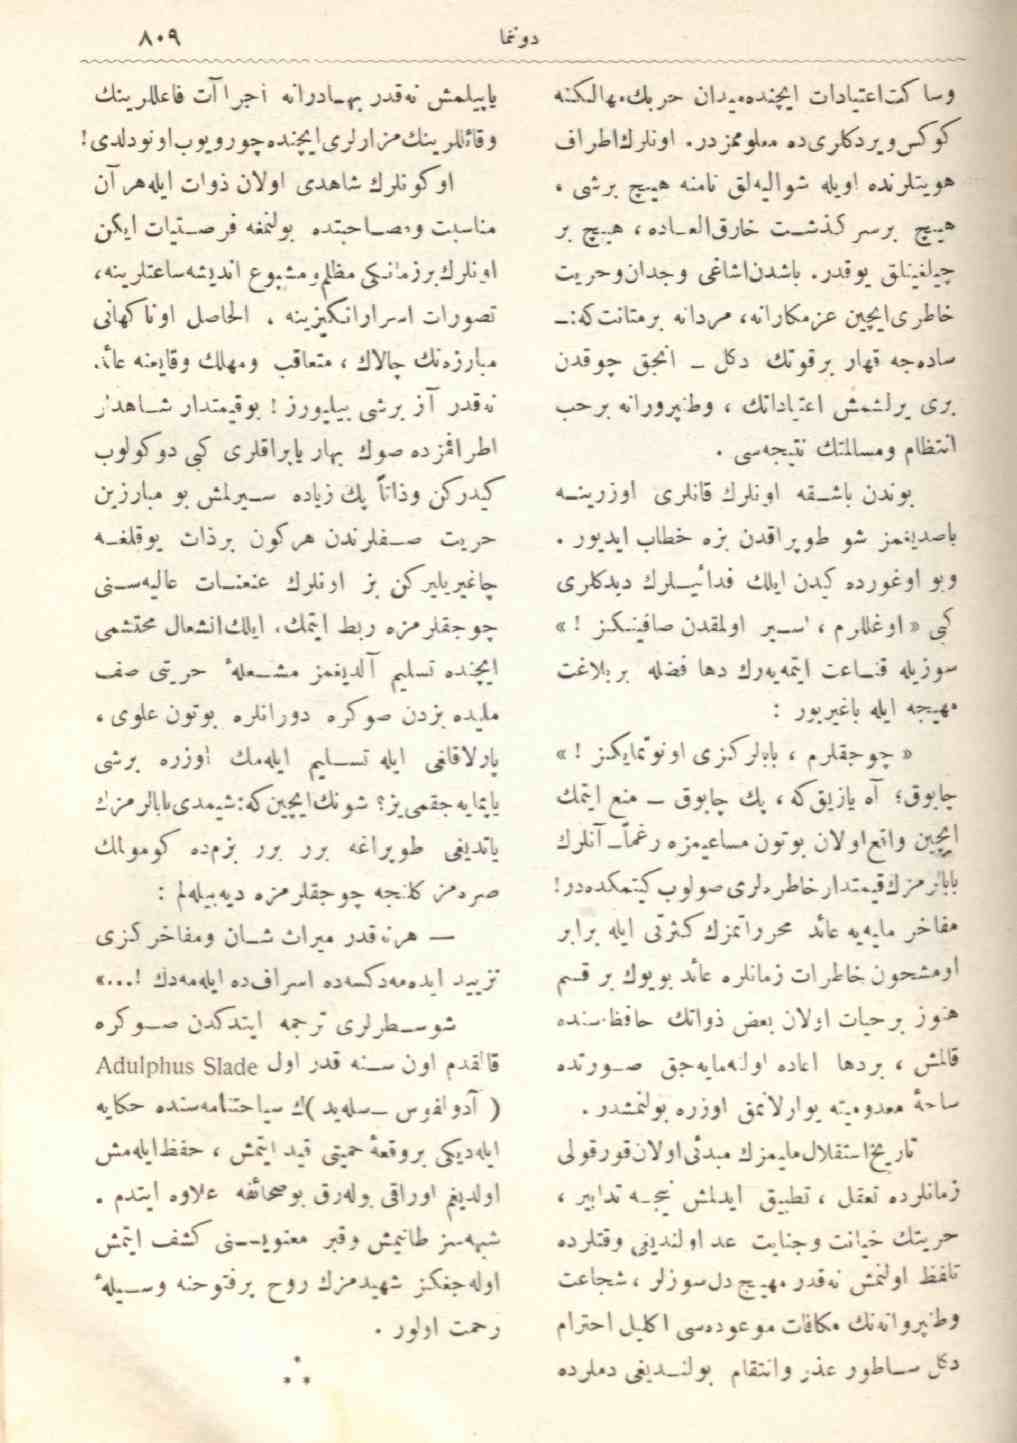 دونما
٨٠٩
وساكت اعتیادات ایچنده میدان حربك مهالكنه
كوكس ویردكلری ده معلومزدر. اونلرك اطراف
هویتلرنده اویله شوالیه لق نامنه هیچ برشی ،
هیچ برسر كذشت خارق العاده ، هیچ بر
چیلغینلق یوقدر. باشدن اشاغی وجدان وحریت
خاطری ایچین عزمكارانه، مردانه برمتانت كه:ـ
ساده جه قهار برقوتك دكل ـ انجق چوقدن
بری یرلشمش اعتیاداتك ، وطنپرورانه برحب
انتظام ومسالمتك نتیجه سی .
بوندن باشقه اونلرك قانلری اوزرینه
باصدیغمز شو طوپراقدن بزه خطاب ایدیور .
وبو اوغورده كیدن ایلك فدائیلرك دیدكلری
كبی « اوغللرم ، اسیر اولمقدن صاقینكز ! »
سوزیله قناعت ایتمه یه رك دها فضله بربلاغت
مهیجه ایله باغیریور :
« چوجقلرم ، بابالركزی اونوتمایكز ! »
چابوق؛ آه یازیق كه ، پك چابوق ـ منع ایتمك
ایچین واقع اولان بوتون مساعیمزه رغماًـ آنلرك
بابالرمزك قیمتدار خاطره لری صولوب كیتمكده در!
مفاخر مایه یه عائد محرراتمزك كثرتی ایله برابر
اومشحون خاطرات زمانلره عائد بویوك بر قسم
هنوز برحیات اولان بعض ذواتك حافظه سنده
قالمش ، بردها اعاده اولنه مایه جق صورتده
ساحهٔ معدومیته یوارلانمق اوزره بولنمشدر .
تاریخ استقلال ملیمزك مبدئی اولان قورقولی
زمانلرده تعقل ، تطبیق ایدلمش نیجه تدابیر ،
حریتك خیانت وجنایت عد اولندیغی وقتلرده
تلفظ اولنمش نه قدر مهیج دل سوزلر ، شجاعت
وطنپروانه نك مكافات موعوده سی اكلیل احترام
دكل ساطور عذر وانتقام بولندیغی دملرده
یاپیلمش نه قدر بهادرانه اجرا آت فاعللرینك
وقائللرینك مزارلری ایچنده چورویوب اونودلدی!
اوكونلرك شاهدی اولان ذوات ایله هر آن
مناسبت ومصاحبتده بولنمغه فرصتیاب ایكن
اونلرك برزمانكی مظلم ومشبوع اندیشه ساعتلرینه،
تصورات اسرارانكیزینه . الحاصل اوناكهانی
مبارزه نك چالاك ، متعاقب ومهلك وقایعنه عائد
نه قدر آز برشی بیلیورز ! بوقیمتدار شاهدلر
اطرافمزده صوك بهار یاپراقلری كبی دوكولوب
كیدركن وذاتاً پك زیاده سیرلمش بو مبارزین
حریت صفلرندن هركون برذات یوقلغه
چاغیریلیركن بز اونلرك عنعنات عالیه سنی
چوجقلرمزه ربط ایتمك، ایلك انشعال محتشمی
ایچنده تسلیم آلدیغمز مشعلهٔ حریتی صف
ملیده بزدن صوكره دورانلره بوتون علوی ،
پارلاقلغی ایله تسلیم ایله مك اوزره برشی
یاپمایه جقمی یز؟ شونك ایچین كه: شیمدی بابالرمزك
یاتدیغی طوپراغه برر برر بزم ده كومولمك
صره مز كلنجه چوجقلرمزه دیه بیله لم :
— هر نه قدر میراث شان ومفاخركزی
تزیید ایده مه دكسه ده اسراف ده ایله مه دك !...»
شو سطرلری ترجمه ایتدكدن صوكره
قالقدم اون سنه قدر اول Adulphus Slade
( آدولفوس ـ سله ید )ك سیاحتنامه سنده حكایه
ایله دیكی بروقعهٔ حمیتی قید ایتمش ، حفظ ایله مش
اولدیغم اوراقی بوله رق بوصحائفه علاوه ایتدم .
شبهه سز طانیمش وقبر معنویسنی كشف ایتمش
اوله جغكز شهیدمزك روح پرفتوحنه وسیلهٔ
رحمت اولور .
⁂